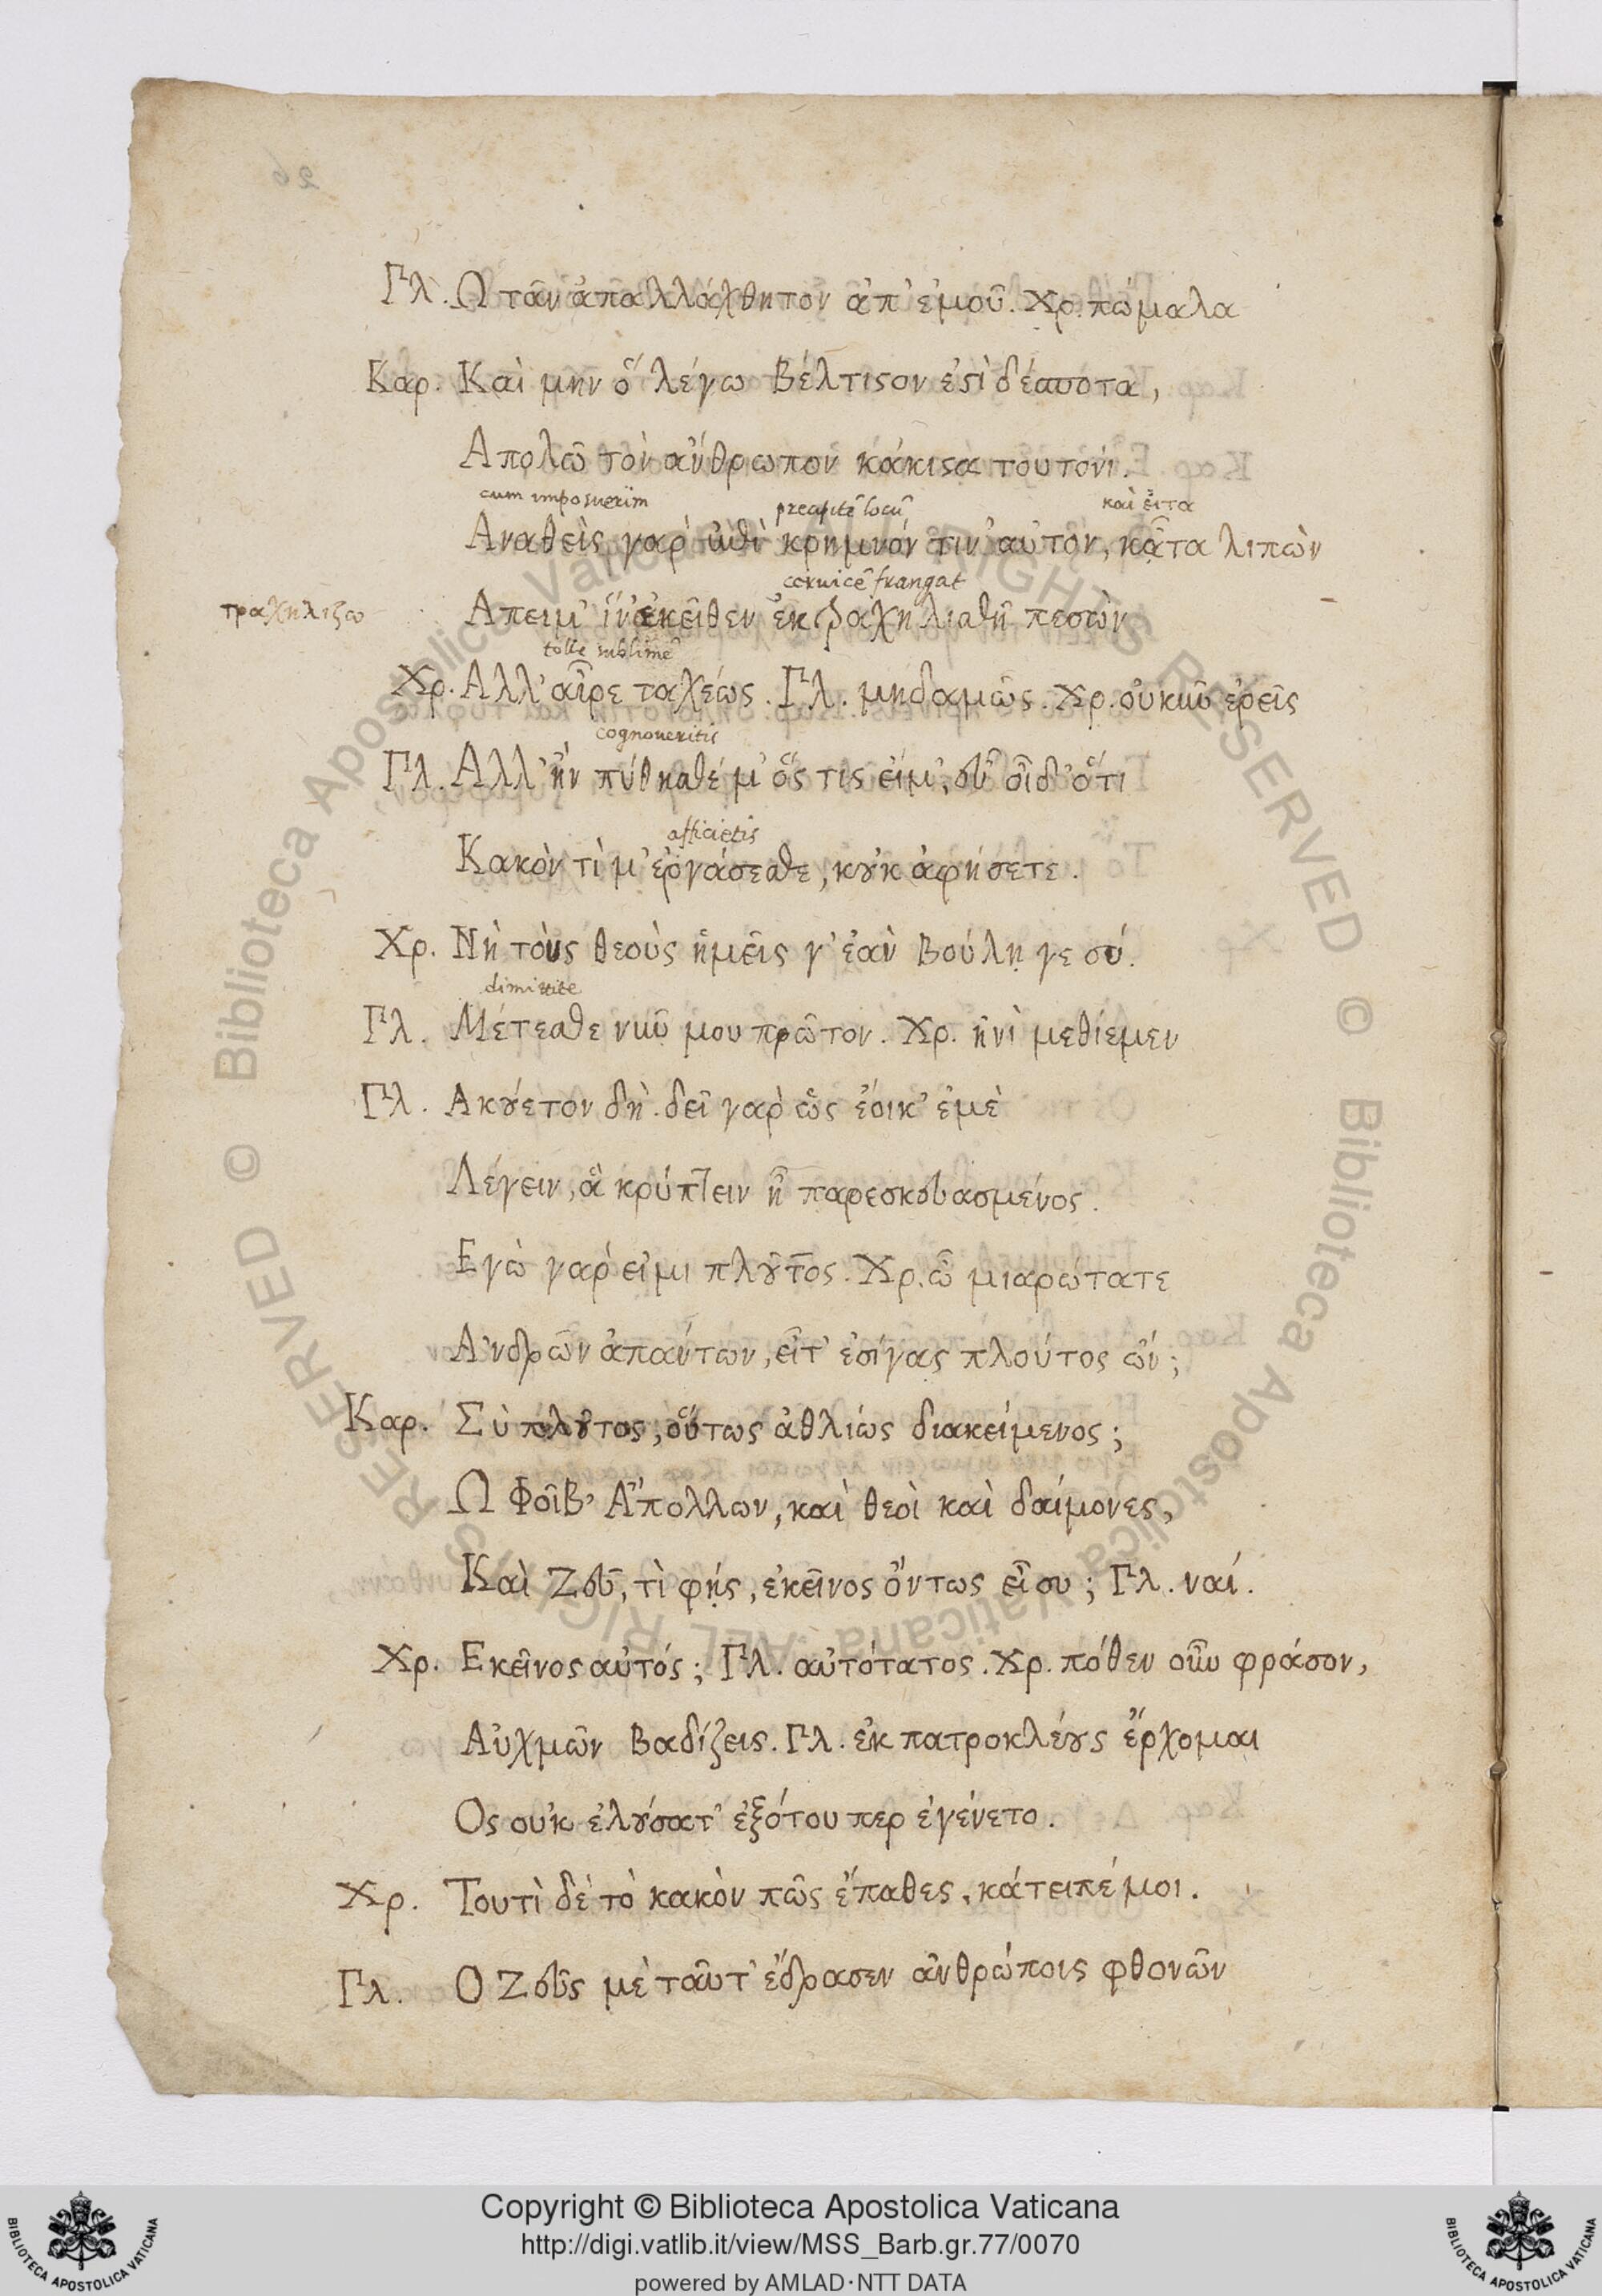 Πλ. Ω τᾶν ἀπαλλάχθητον ἀπ' ἐμοῦ. Χρ. πώμαλα
Καρ. Καὶ μὴν ὅ λέγω βέλτιϛον ἐϛὶ δέσποτα,
Απολῶ τὸν ἄνθρωπον κάκιϛα τουτονί.
cum imposuerim precipitē locū καὶ εἶτα
Αναθεὶς γὰρ ἐπὶ κρημνόν τιν' αὐτὸν, κᾆτα λιπὼν
ceruicē frangat
τραχηλιζω Απειμ' ἵν' ἐκεῖθεν ἐκτραχηλισθῇ πεσὼν
tolle sublimē
Χρ. Αλλ' αἶρε ταχέως. Πλ. μηδαμῶς. Χρ. οὔκουν ἐρεῖς
cognoueritis
Πλ. Αλλ' ἢν πύθησθέ μ' ὅς τις εἰμ', εὖ οἶδ' ὅτι
afficietis
Κακὸν τὶ μ' ἐργάσεσθε, κοὐκ ἀφήσετε.
Χρ. Νὴ τοὺς θεοὺς ἡμεῖς γ' ἐὰν βούλῃ γε σύ.
dimittite
Πλ. Μέτεσθε νῦν μου πρῶτον. Χρ. ἡνὶ μεθίεμεν
Πλ. Ακούετον δή. δεῖ γὰρ ὡς ἔοικ' ἐμὲ
Λέγειν, ἃ κρύπτειν ἦ παρεσκευασμένος.
Εγὼ γάρ εἰμι πλοῦτος. Χρ. ὦ μιαρώτατε
Ανδρῶν ἁπάντων, εἶτ' ἐσίγας πλούτος ὤν;
Καρ. Σὺ πλοῦτος, οὕτως ἀθλίως διακείμενος;
Ω Φοῖβ' Ἄπολλων, καὶ θεοὶ καὶ δαίμονες,
Καὶ Ζεῦ, τὶ φῄς, ἐκεῖνος ὄντως εἶ συ; Πλ. ναί.
Χρ. Εκεῖνος αὐτός; Πλ. αὐτότατος. Χρ. πόθεν οὖν φράσον,
Αὐχμῶν βαδίζεις. Πλ. ἐκ πατροκλέους ἔρχομαι
Ος ουκ ἐλούσατ' ἐξότου περ ἐγένετο.
Χρ. Τουτὶ δὲ τὸ κακὸν πῶς ἔπαθες, κάτειπέ μοι.
Πλ. Ο Ζεῦς μὲ ταῦτ' ἔδρασεν ἀνθρώποις φθονῶν
Copyright © Biblioteca Apostolica Vaticana
http://digi.vatlib.it/view/MSS_Barb.gr.77/0070
powered by AMLAD·NTT DATA